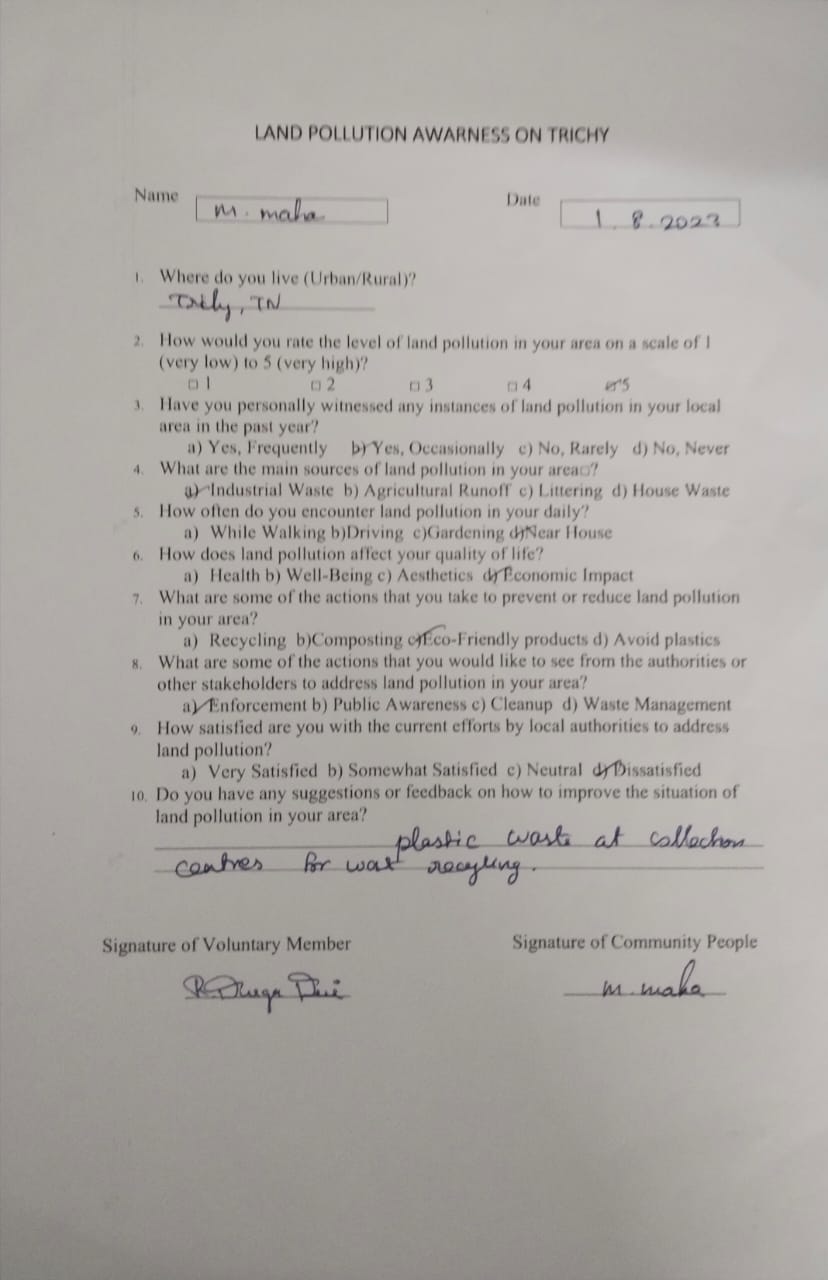 LAND POLLUTION AWARNESS ON TRICHY
Name M. maha Date 1.8.2023
1. Where do you live (Urban/Rural)?
TN
2. How would you rate the level of land pollution in your area on a scale of 1
(very low) to 5 (very high)?
□ 1 □ 2 □ 3 □ 4 □ 5
3. Have you personally witnessed any instances of land pollution in your local
area in the past year?
a) Yes, Frequently b) Yes, Occasionally c) No, Rarely d) No, Never
4. What are the main sources of land pollution in your area□?
a) Industrial Waste b) Agricultural Runoff c) Littering d) House Waste
5. How often do you encounter land pollution in your daily?
a) While Walking b)Driving c)Gardening d)Near House
6. How does land pollution affect your quality of life?
a) Health b) Well-Being c) Aesthetics d) Economic Impact
7. What are some of the actions that you take to prevent or reduce land pollution
in your area?
a) Recycling b)Composting c)Eco-Friendly products d) Avoid plastics
8. What are some of the actions that you would like to see from the authorities or
other stakeholders to address land pollution in your area?
a) Enforcement b) Public Awareness c) Cleanup d) Waste Management
9. How satisfied are you with the current efforts by local authorities to address
land pollution?
a) Very Satisfied b) Somewhat Satisfied c) Neutral d) Dissatisfied
10. Do you have any suggestions or feedback on how to improve the situation of
land pollution in your area?
plastic waste at collection
centres for recycling.
Signature of Voluntary Member Signature of Community People
m. maha